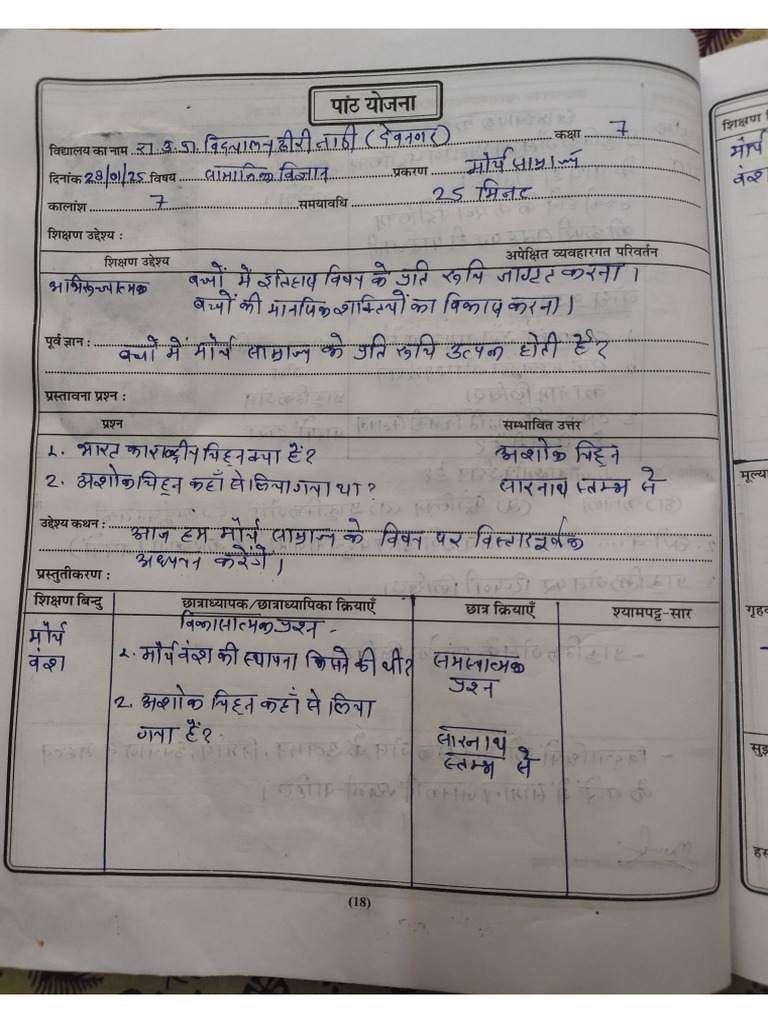 पाठ योजना
विद्यालय का नाम रा. उ. प्रा. विद्यालय (देवनगर) कक्षा 7
दिनांक 29/01/25 विषय सामाजिक विज्ञान प्रकरण मौर्य साम्राज्य
कालांश 7 समयावधि 25 मिनट
शिक्षण उद्देश्य :
शिक्षण उद्देश्य अपेक्षित व्यवहारगत परिवर्तन
अभिरूच्यात्मक बच्चों में इतिहास विषय के प्रति रूचि जाग्रत करना।
बच्चों की मानसिक शक्तियों का विकास करना।
पूर्व ज्ञान : बच्चों में मौर्य साम्राज्य के प्रति रूचि उत्पन्न होती हैं?
प्रस्तावना प्रश्न :
प्रश्न सम्भावित उत्तर
1. भारत का राष्ट्रीय चिह्न क्या हैं? अशोक चिह्न
2. अशोक चिह्न कहाँ से लिया गया था? सारनाथ स्तम्भ से
उद्देश्य कथन : आज हम मौर्य साम्राज्य के विषय पर विस्तारपूर्वक
अध्ययन करेंगे।
प्रस्तुतीकरण :
शिक्षण बिन्दु छात्राध्यापक/छात्राध्यापिका क्रियाएँ छात्र क्रियाएँ श्यामपट्ट-सार
विकासात्मक प्रश्न -
मौर्य वंश 1. मौर्य वंश की स्थापना किसने की थी? समस्यात्मक प्रश्न
2. अशोक चिह्न कहाँ से लिया
गया हैं? सारनाथ स्तम्भ से
(18)
शिक्षण
मौर्य
वंश
मूल्या
गृह
सुझ
हस्